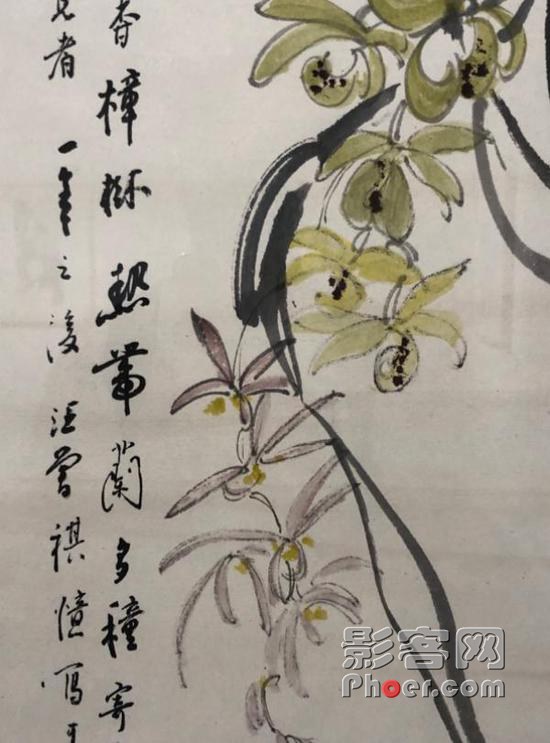 香樟 熱帶蘭多種寄
見者 一年之後 汪曾祺憶寫于
影客网
Phoer.com